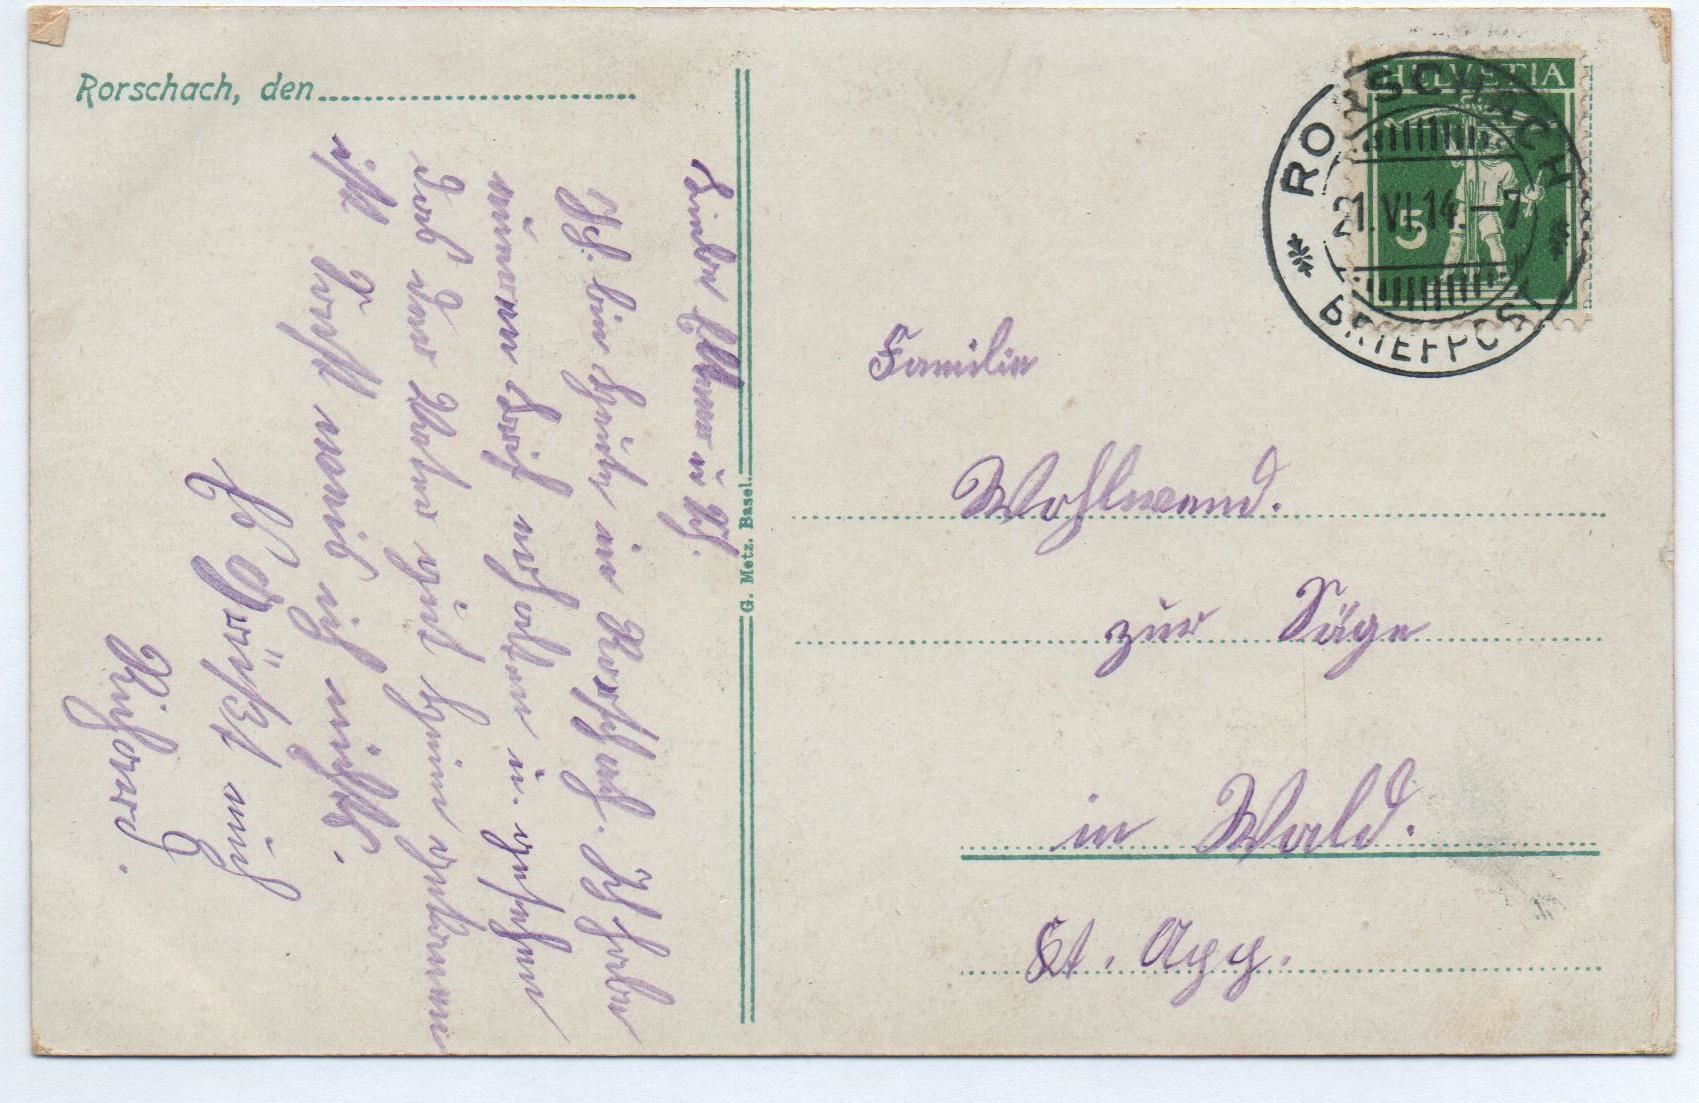 Rorschach, den
Liebe Eltern u. Gh.
Ich bin heute in Rorschach. Ich habe
einen Brief erhalten u. gesehen
das der Vater gut heim gekommen
ist. Sonst weis ich nichts.
Es Grüßt euch
Richard.
G. Metz. Basel.
HELVETIA
5
RORSCHACH
21.VI.14.–7
BRIEFPOST
Familie
Wohlwend.
zur Säge
in Wald.
Kt. App.